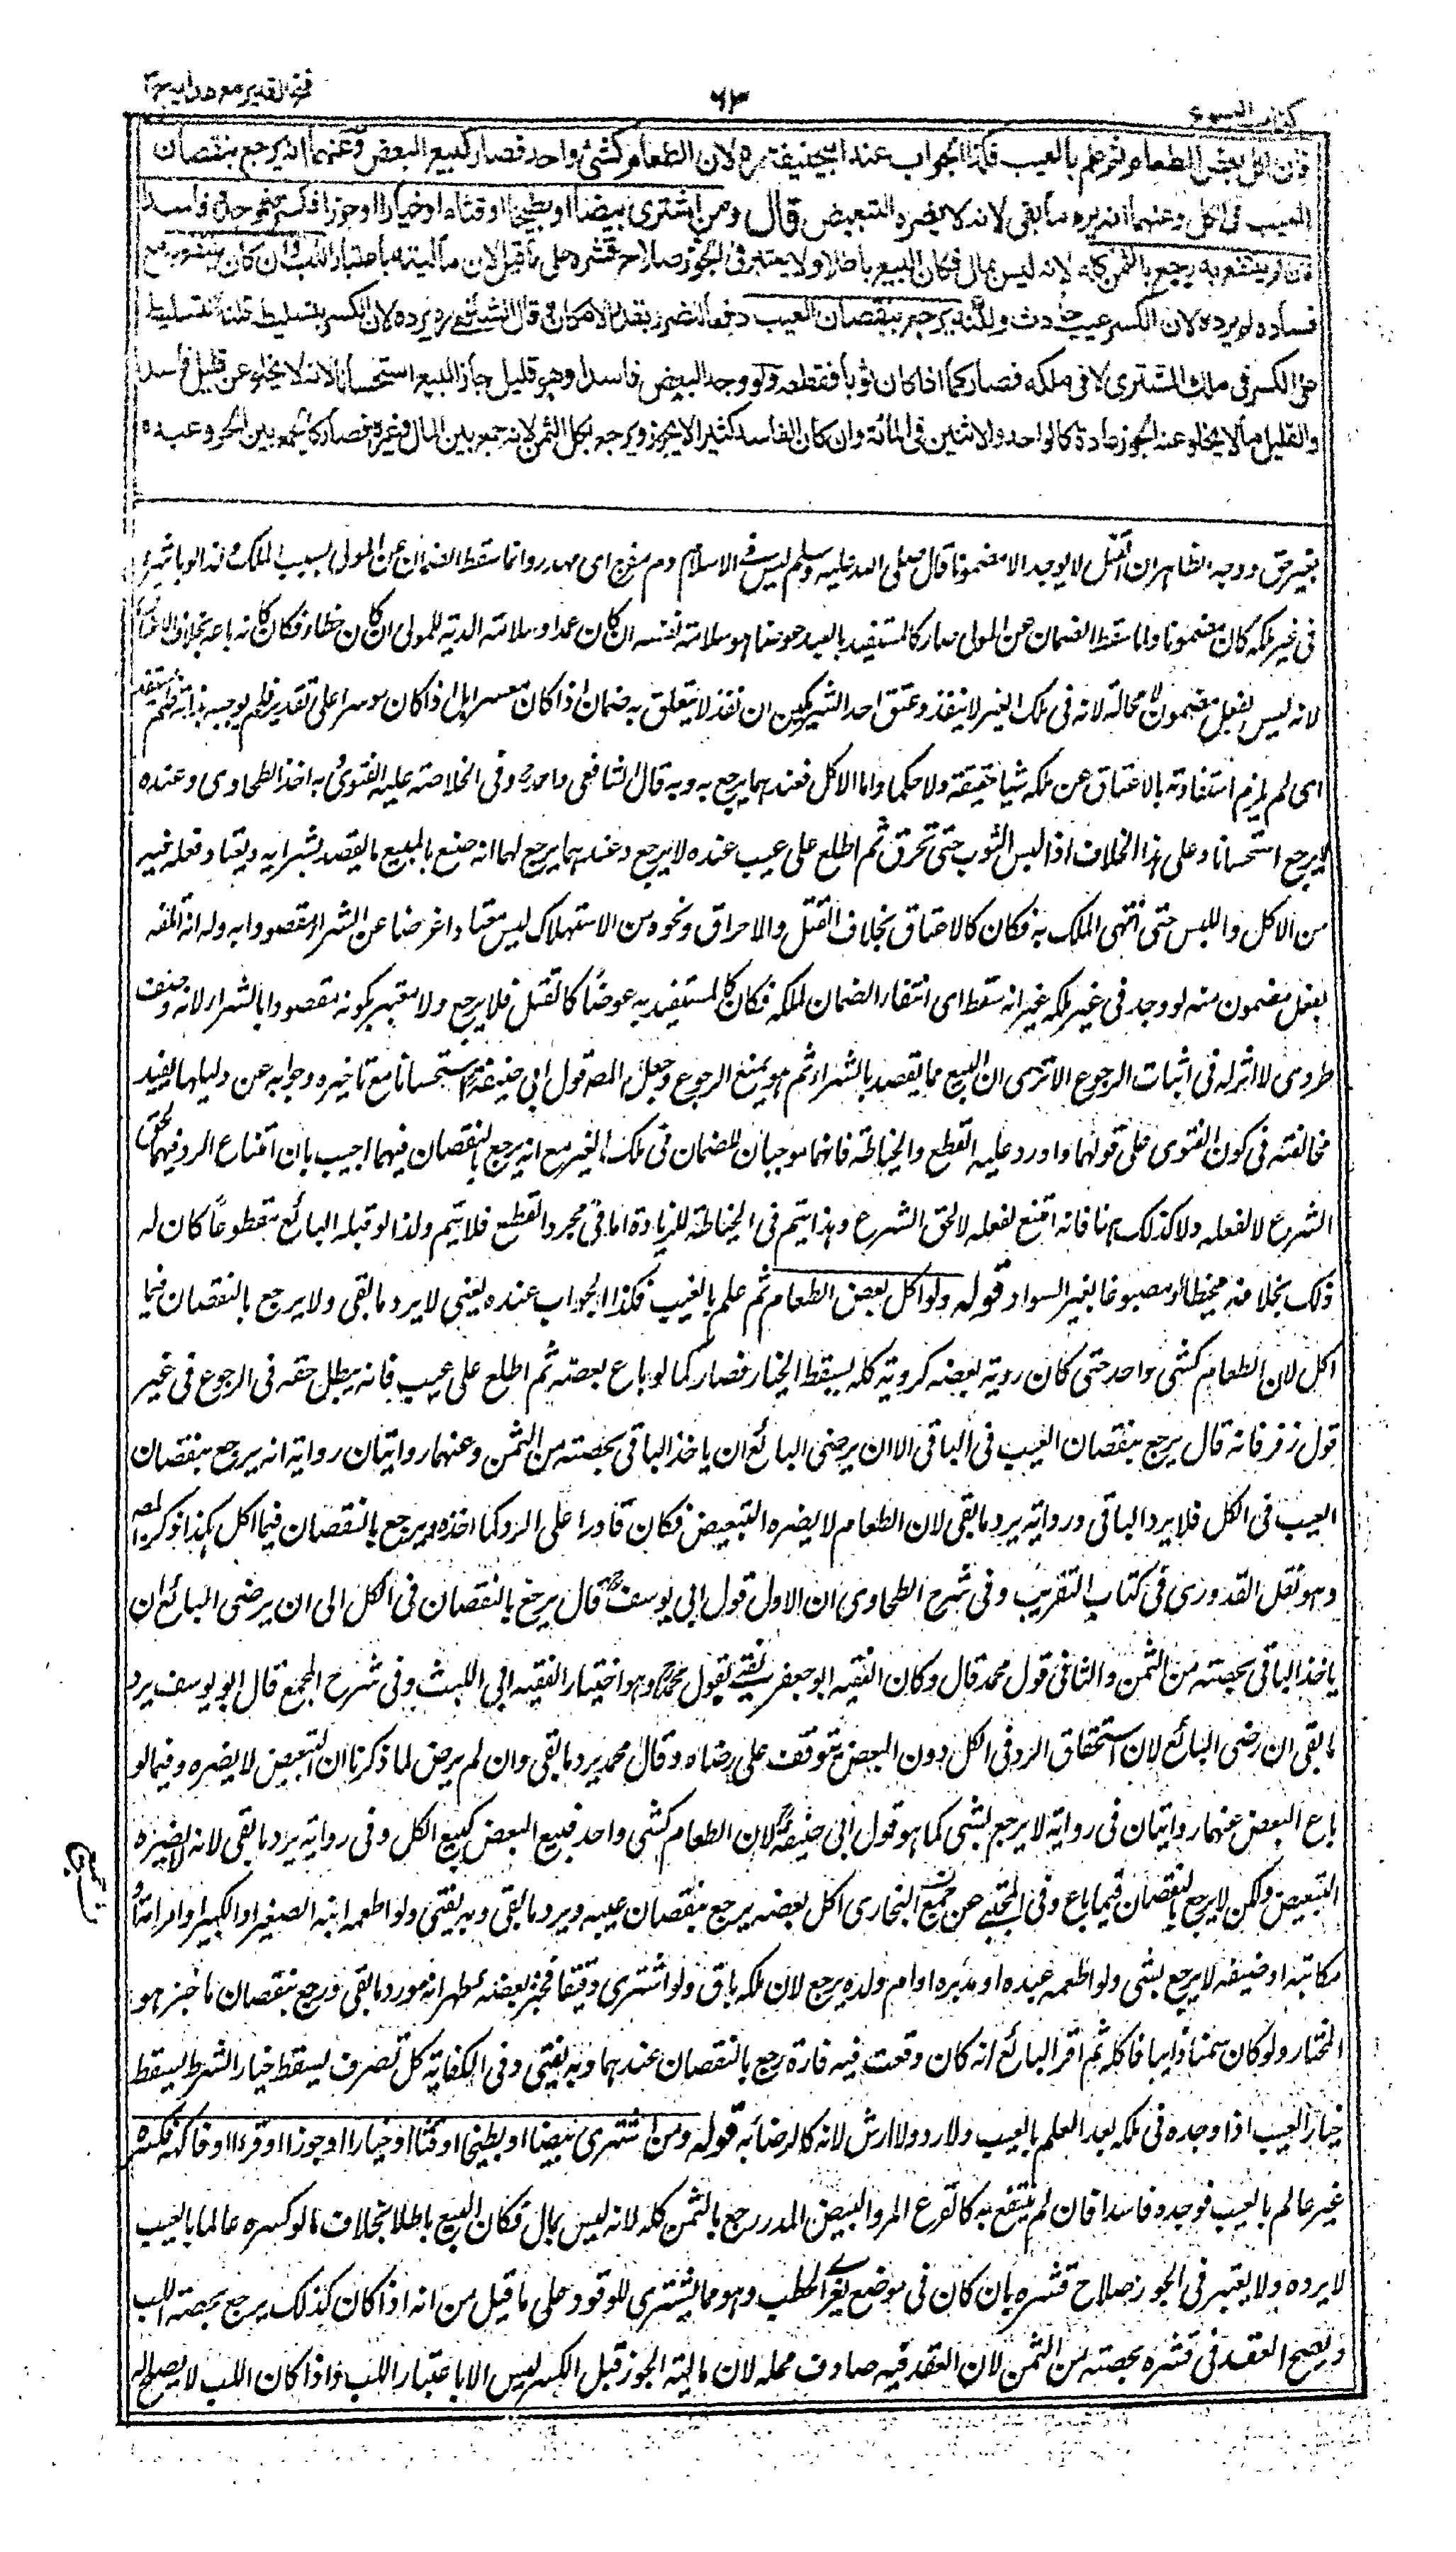 فتح القدير مع هدايه ج٣
٦٣
كتاب البيوع
فان اكل بعض الطعام ثم علم بالعيب فكذا الجواب عند ابيحنيفة ره لان الطعام كشئ واحد فصار كبيع البعض وعنهما انه يرجع بنقصان
العيب فى الكل وعنهما انه يرد ما بقى لانه لا يضره التبعيض قال ومن اشترى بيضا او بطيخا او قثاء او خيارا او جوزا فكسره فوجده فاسدا
فان لم ينتفع به رجع بالثمن كله لانه ليس بمال فكان البيع باطلا ولا يعتبر فى الجوز صلاح قشره على ما قيل لان ماليته باعتبار اللب وان كان ينتفع به مع
فساده لم يرده لان الكسر عيب حادث ولكنه يرجع بنقصان العيب دفعا للضرر بقدر الامكان وقال الشافعى ره يرده لان الكسر بتسليطه قلنا التسليط
على الكسر فى ملك المشترى لا فى ملكه فصار كما اذا كان ثوبا فقطعه ولو وجد البعض فاسدا وهو قليل جاز البيع استحسانا لانه لا يخلو عن قليل فاسد
والقليل ما لا يخلو عنه الجوز عادة كالواحد والاثنين فى المائة وان كان الفاسد كثيرا لا يجوز ويرجع بكل الثمن لانه جمع بين المال وغيره فصار كالجمع بين الحر وعبده
بغير حق ووجه الظاهر ان القتل لا يوجد الا مضمونا قال صلى الله عليه وسلم ليس فى الاسلام دم مفرج اى مهدر وانما سقط الضمان عن المولى بسبب الملك ولذا لو باشره
فى غير ملكه كان مضمونا ولما سقط الضمان عن المولى صار كالمستفيد بالعبد عوضا هو سلامة نفسه ان كان عمدا وسلامة الدية للمولى ان كان خطأ فكان كانه باعه بخلاف الاعتاق
لانه ليس بفعل مضمون لا محالة لانه فى ملك الغير لا ينفذ وعتق احد الشريكين ان نفذ لا يتعلق به ضمان اذا كان معسرا بل اذا كان موسرا على تقدير فلم يوجبه بذاته فلم يستفد
اى لم يلزم استفادته بالاعتاق عن ملكه شيأ حقيقة ولا حكما واما الاكل فعندهما يرجع به وبه قال الشافعى واحمد وفى الخلاصة عليه الفتوى وبه اخذ الطحاوى وعنده
لا يرجع استحسانا وعلى هذا الخلاف اذا لبس الثوب حتى تخرق ثم اطلع على عيب عنده لا يرجع وعندهما يرجع لهما انه صنع بالمبيع ما يقصد بشرايه ويعتاد فعله فيه
من الاكل واللبس حتى انتهى الملك به فكان كالاعتاق بخلاف القتل والاحراق ونحوه من الاستهلاك ليس معتادا غرضا عن الشراء مقصودا به وله انه اتلفه
بفعل مضمون منه لو وجد فى غير ملكه غير انه سقط اى انتفاء الضمان لملكه فكان كالمستفيد به عوضا كالقتل فلا يرجع ولا معتبر بكونه مقصودا بالشراء لانه وصف
طردى لا اثر له فى اثبات الرجوع الا ترى ان البيع مما يقصد بالشراء ثم هو يمنع الرجوع وجعل المص قول ابى حنيفة استحسانا مع تاخيره وجوابه عن دليلهما يفيد
مخالفته فى كون الفتوى على قولهما واورد عليه القطع والخياطة فانهما موجبان للضمان فى ملك الغير مع انه يرجع بالنقصان فيهما اجيب بان امتناع الرد فيهما لحق
الشرع لا لفعله ولا كذلك هنا فانه امتنع لفعله لا لحق الشرع وهذا يتم فى الخياطة للزيادة اما فى مجرد القطع فلا يتم ولذا لو قبله البائع مقطوعا كان له
ذلك بخلافه مخيطا او مصبوغا بغير السواد قوله ولو اكل بعض الطعام ثم علم بالعيب فكذا الجواب عنده يعنى لا يرد ما بقى ولا يرجع بالنقصان فيما
اكل لان الطعام كشى واحد حتى كان روية بعضه كروية كله يسقط الخيار فصار كما لو باع بعضه ثم اطلع على عيب فانه يبطل حقه فى الرجوع فى غير
قول زفر فانه قال يرجع بنقصان العيب فى الباقى الا ان يرضى البائع ان ياخذ الباقى بحصته من الثمن وعنهما روايتان رواية انه يرجع بنقصان
العيب فى الكل فلا يرد الباقى ورواية يرد ما بقى لان الطعام لا يضره التبعيض فكان قادرا على الرد كما اخذه ويرجع بالنقصان فيما اكل هكذا ذكره المص
وهو نقل القدورى فى كتاب التقريب وفى شرح الطحاوى ان الاول قول ابى يوسف قال يرجع بالنقصان فى الكل الى ان يرضى البائع ان
ياخذ الباقى بحصته من الثمن والثانى قول محمد قال وكان الفقيه ابو جعفر يفتى بقول محمد وهو اختيار الفقيه ابى الليث وفى شرح المجمع قال ابو يوسف يرد
ما بقى ان رضى البائع لان استحقاق الرد فى الكل دون البعض يتوقف على رضاه وقال محمد يرد ما بقى وان لم يرض لما ذكرنا ان التبعيض لا يضره وفيما لو
باع البعض عنهما روايتان فى رواية لا يرجع بشى كما هو قول ابى حنيفة لان الطعام كشى واحد فبيع البعض كبيع الكل وفى رواية يرد ما بقى لانه لا يضره
التبعيض ولكن لا يرجع بالنقصان فيما باع وفى المجتبى عن جمع البخارى اكل بعضه يرجع بنقصان عيبه ويرد ما بقى وبه يفتى ولو اطعمه ابنه الصغير او الكبير او امرأته او
مكاتبه او ضيفه لا يرجع بشى ولو اطعمه عبده او مدبره او ام ولده يرجع لان ملكه باق ولو اشترى دقيقا فخبز بعضه فظهر انه مر رد ما بقى ورجع بنقصان ما خبز هو
المختار ولو كان سمنا ذايبا فاكله ثم اقر البائع انه كان وقعت فيه فارة رجع بالنقصان عندهما وبه يفتى وفى الكفاية كل تصرف يسقط خيار الشرط يسقط
خيار العيب اذا وجده فى ملكه بعد العلم بالعيب ولا رد ولا ارش لانه كالرضا به قوله ومن اشترى بيضا او بطيخا او قثاء او خيارا او جوزا او قرعا او فاكهة فكسره
غير عالم بالعيب فوجده فاسدا فان لم ينتفع به كالقرع المر والبيض المدر رجع بالثمن كله لانه ليس بمال فكان البيع باطلا بخلاف ما لو كسره عالما بالعيب
لا يرده ولا يعتبر فى الجوز صلاح قشره بان كان فى موضع يعز الحطب وهو مما يشترى للوقود على ما قيل من انه اذا كان كذلك يرجع بحصة اللب
ويصح العقد فى قشره بحصته من الثمن لان العقد فيه صادف محله لان مالية الجوز قبل الكسر ليس الا باعتبار اللب واذا كان اللب لا يصلح له